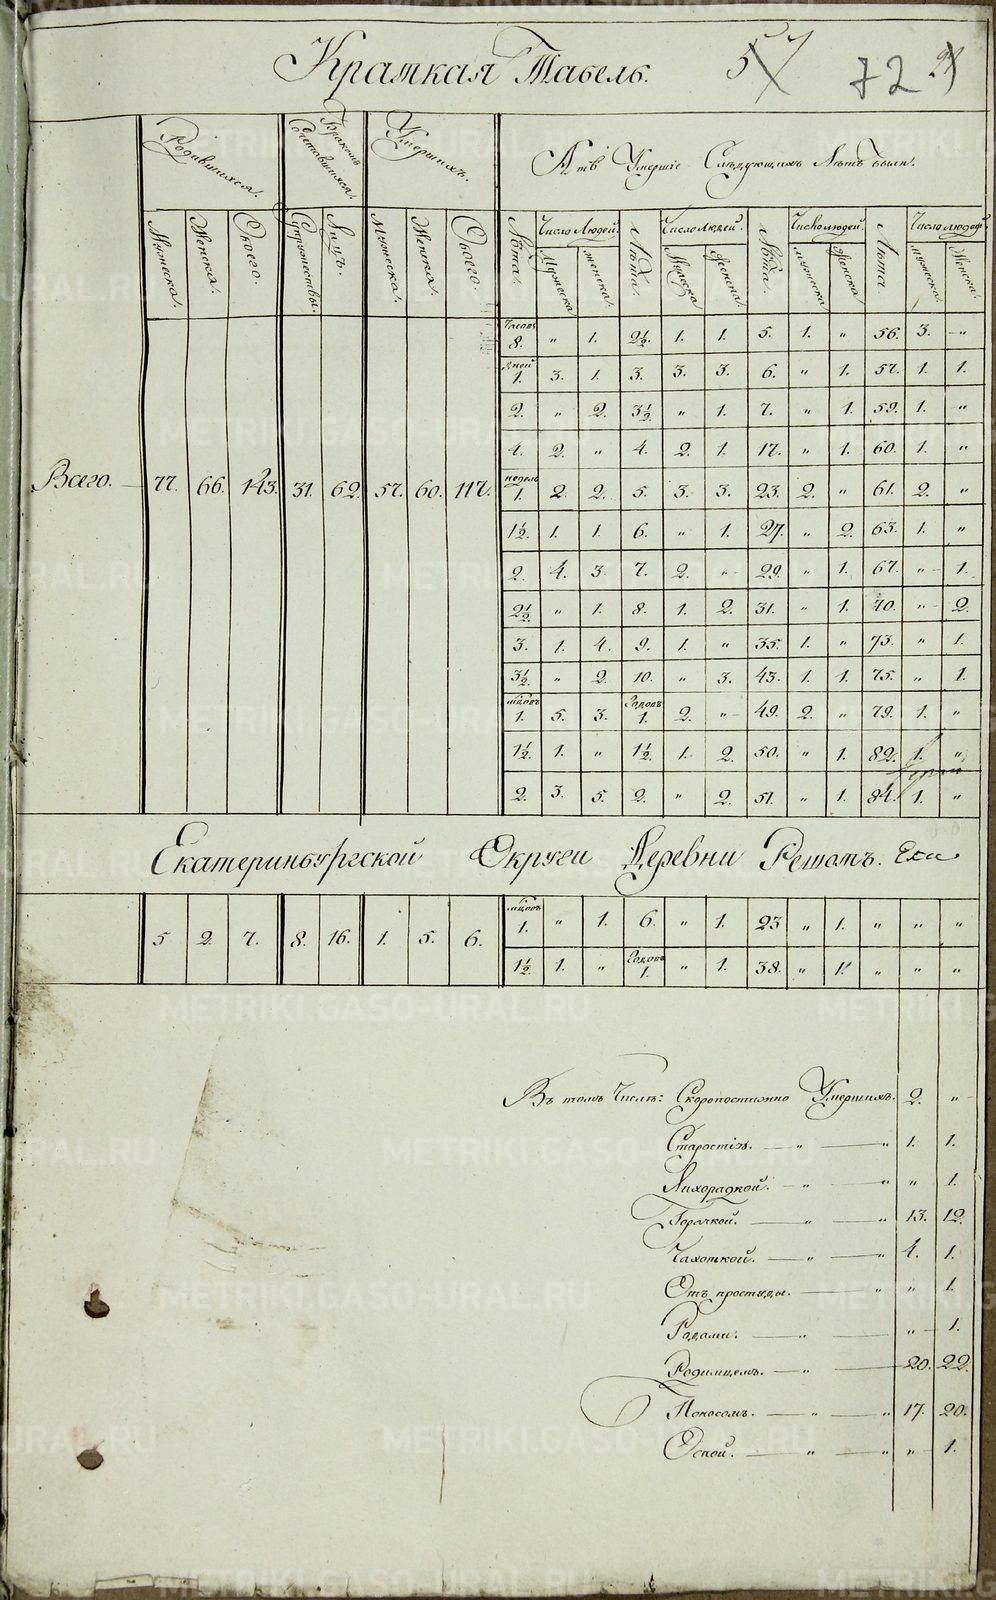 Краткая Табель.
57 72 21
Родившихся. Бракомъ Сочетавшихся. Умершихъ. А тѣ Умершіе Слѣдующихъ Лѣтъ были.
Мужеска. Женска. Обоего. Супружествы. Лицъ. Мужеска. Женска. Обоего. Лѣта. Число Людей. Лѣта. Число людей. Лѣта. Число людей. Лѣта Число людей.
Мужеска женска. Мужеска Женска. мужеска Женска. мужеска. Женска.
Часовъ 8. " 1. 2½. 1. 1. 5. 1. " 56. 3. "
дней 1. 3. 1. 3. 3. 3. 6. " 1. 57. 1. 1.
2. " 2. 3½ " 1. 7. " 1. 59. 1. "
4. 2. " 4. 2. 1. 17. " 1. 60. 1. "
Всего. 77. 66. 143. 31. 62. 57. 60. 117. недель 1. 2. 2. 5. 3. 3. 23. 2. " 61. 2. "
1½. 1. 1. 6. " 1. 27. " 2. 63. 1. "
2. 4. 3. 7. 2. " 29. " 1. 67. " 1.
2½. " 1. 8. 1. 2. 31. " 1. 70. " 2.
3. 1. 4. 9. 1. " 35. 1. " 73. " 1.
3½. " 2. 10. " 3. 43. 1. 1. 75. " 1.
мцовъ 1. 5. 3. Годовъ 1. 2. " 49. 2. " 79. 1. "
1½. 1. " 1½. 1. 2. 50. " 1. 82. 1. "
2. 3. 5. 2. " 2. 51. " 1. 84. 1. "
Екатеринбургской Округи Деревни Решотъ.
5 2. 7. 8. 16. 1. 5. 6. мцовъ 1. " 1. 6. " 1. 23 " 1. " " "
1½ 1. " Годовъ 1. " 1. 38. " 1. " " "
Въ томъ Числѣ: Скоропостижно Умершихъ. 2. "
Старостію. " " 1. 1.
Лихорадкой. " " " 1.
Горячкой. " " 13. 12.
Чахоткой. " " 4. 1.
Отъ простуды. " " 1.
Родами. " " 1.
Родимцемъ. " 20. 22.
Поносомъ. " " 17. 20.
Оспой. " " " 1.
METRIKI.GASO-URAL.RU